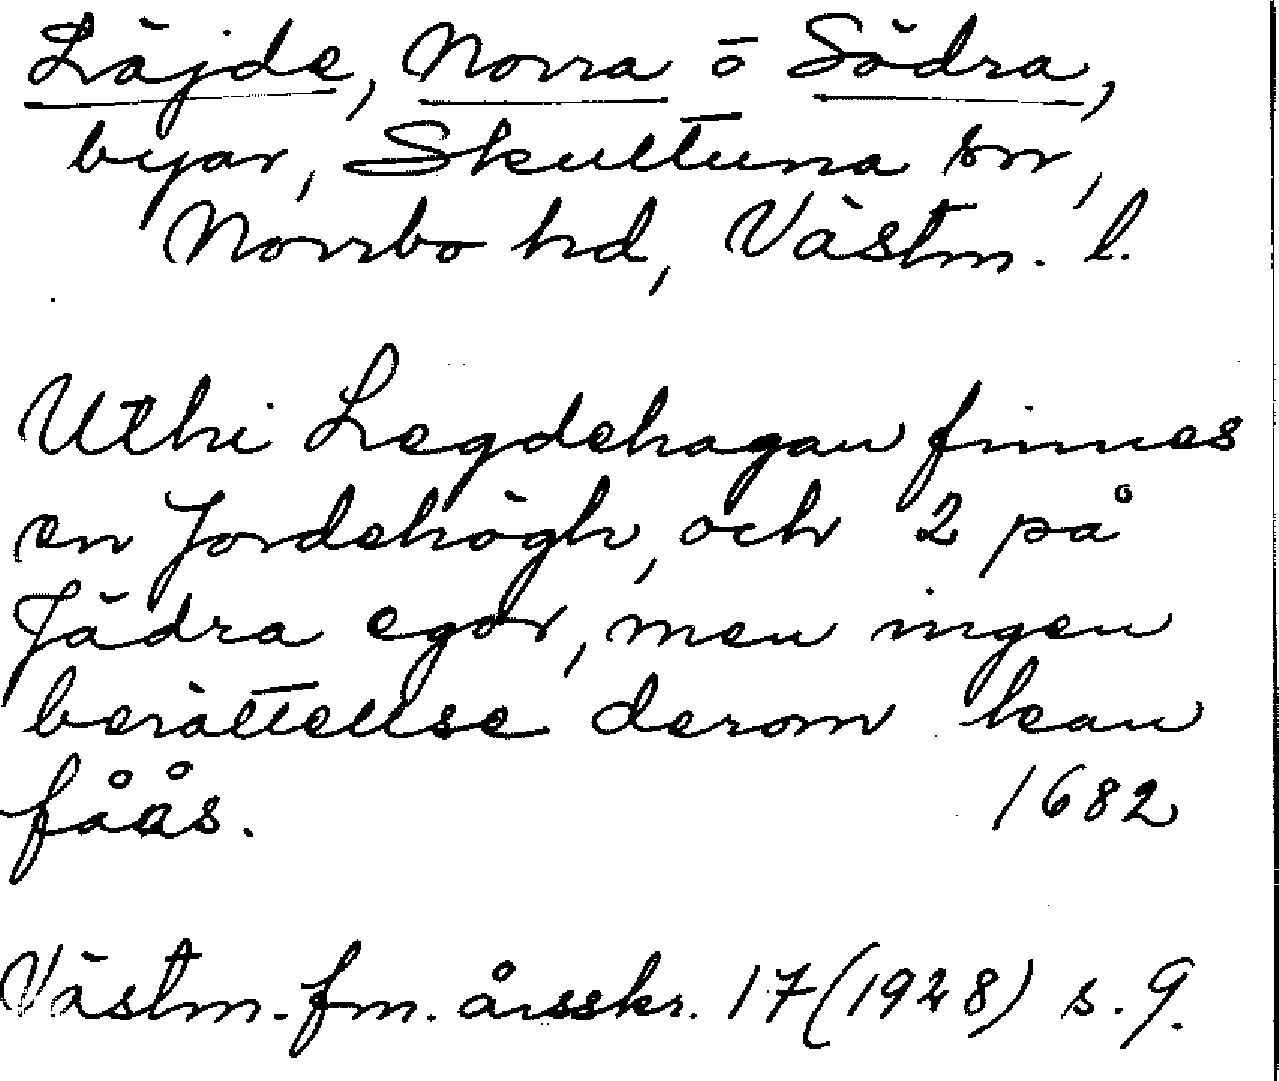 Läjde, Norra o Södra,
byar, Skultuna sn,
Norrbo hd, Västm. l.
Uthi Legdehagan finnes
en Jordehögh, och 2 på
Jädra egor, men ingen
berättellse derom kan
fåås. 1682
Västm. fm. årsskr. 17 (1928) s. 9.